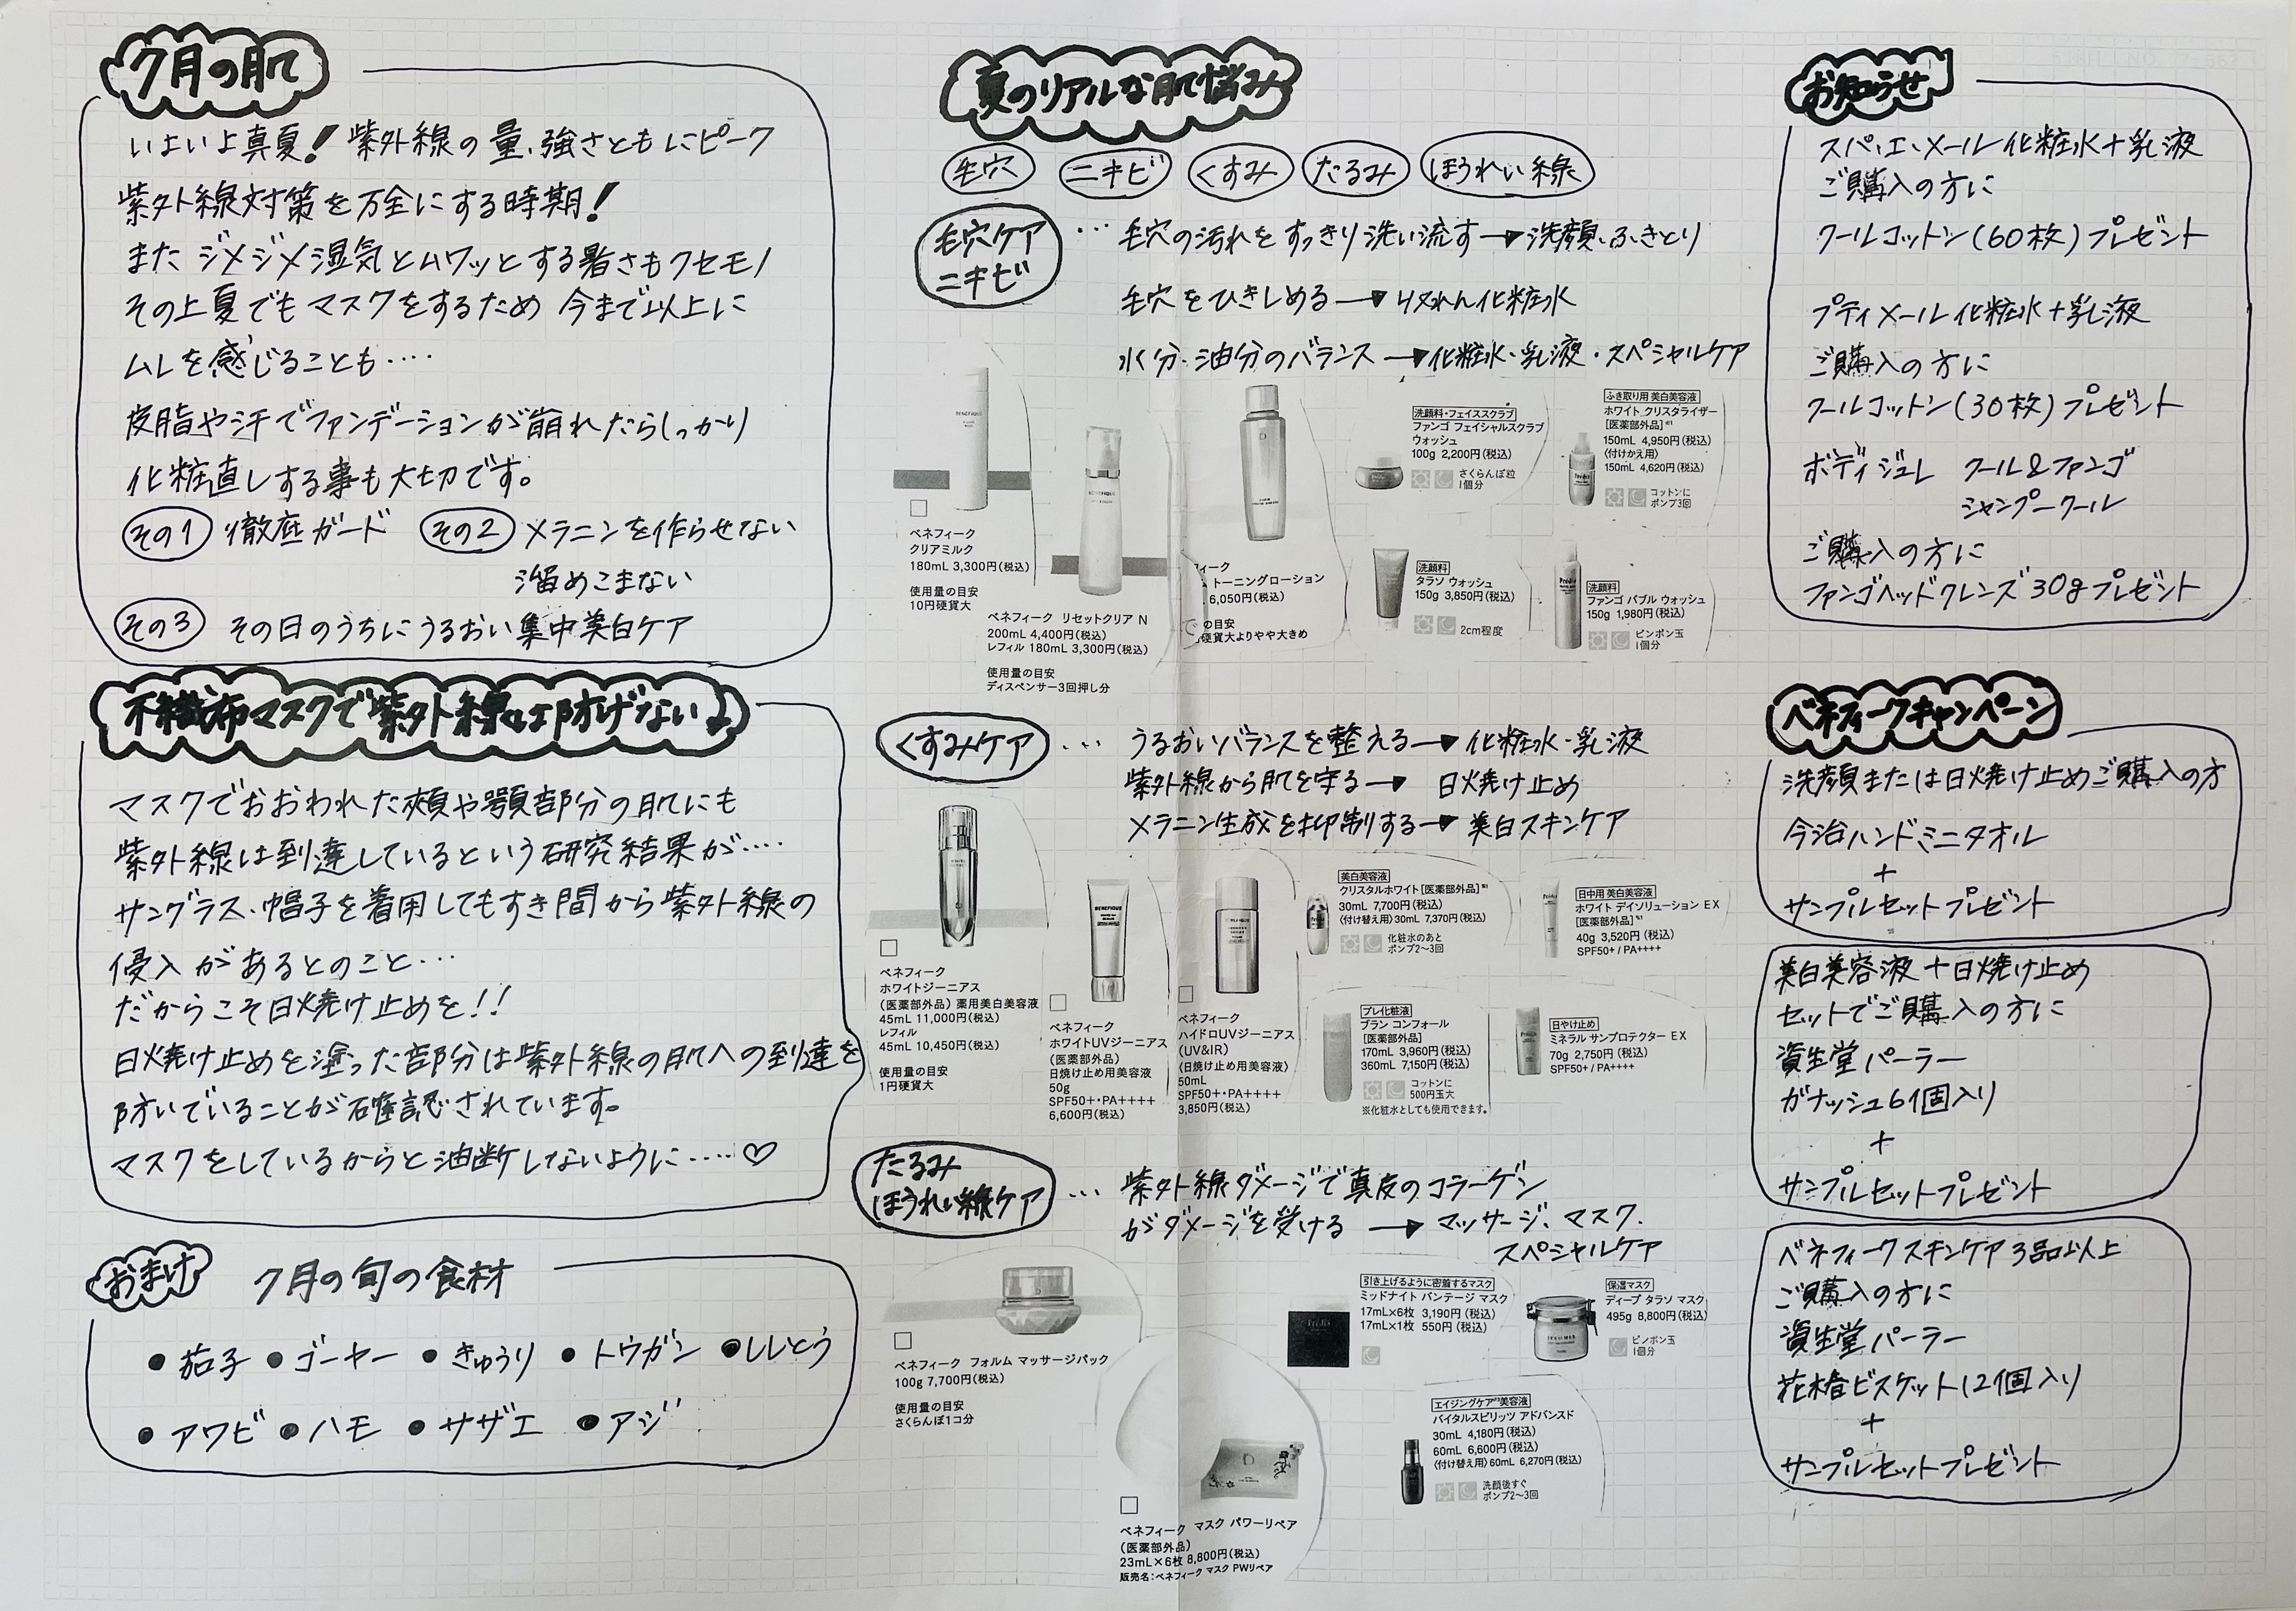 7月の肌
いよいよ真夏! 紫外線の量、強さともにピーク
紫外線対策を万全にする時期!
また ジメジメ湿気とムワッとする暑さもクセモノ
その上夏でもマスクをするため 今まで以上に
ムレを感じることも‥‥
皮脂や汗でファンデーションが崩れたらしっかり
化粧直しする事も大切です。
その1 徹底ガード その2 メラニンを作らせない
溜めこまない
その3 その日のうちにうるおい集中美白ケア
不織布マスクで紫外線は防げない♪
マスクでおおわれた頬や顎部分の肌にも
紫外線は到達しているという研究結果が‥‥
サングラス、帽子を着用してもすき間から紫外線の
侵入があるとのこと…
だからこそ日焼け止めを!!
日焼け止めを塗った部分は紫外線の肌への到達を
防いでいることが確認されています。
マスクをしているからと油断しないように‥‥♡
おまけ 7月の旬の食材
●茄子 ●ゴーヤー ●きゅうり ●トウガン ●ししとう
●アワビ ●ハモ ●サザエ ●アジ
夏のリアルな肌悩み
毛穴 ニキビ くすみ たるみ ほうれい線
毛穴ケア
ニキビ
… 毛穴の汚れをすっきり洗い流す→洗顔、ふきとり
毛穴をひきしめる→収れん化粧水
水分・油分のバランス→化粧水・乳液・スペシャルケア
ベネフィーク
クリアミルク
180mL 3,300円(税込)
使用量の目安
10円硬貨大
BENEFIQUE
ベネフィーク リセットクリア N
200mL 4,400円(税込)
レフィル 180mL 3,300円(税込)
使用量の目安
ディスペンサー3回押し分
ィーク
トーニングローション
6,050円(税込)
の目安
硬貨大よりやや大きめ
洗顔料・フェイススクラブ
ファンゴ フェイシャルスクラブ
ウォッシュ
100g 2,200円(税込)
さくらんぼ粒
1個分
ふき取り用 美白美容液
ホワイト クリスタライザー
[医薬部外品]
150mL 4,950円(税込)
〈付けかえ用〉
150mL 4,620円(税込)
コットンに
ポンプ3回
洗顔料
タラソ ウォッシュ
150g 3,850円(税込)
2cm程度
洗顔料
ファンゴ バブル ウォッシュ
150g 1,980円(税込)
ピンポン玉
1個分
くすみケア … うるおいバランスを整える→化粧水・乳液
紫外線から肌を守る→ 日焼け止め
メラニン生成を抑制する→美白スキンケア
ベネフィーク
ホワイトジーニアス
(医薬部外品) 薬用美白美容液
45mL 11,000円(税込)
レフィル
45mL 10,450円(税込)
使用量の目安
1円硬貨大
BENEFIQUE
ベネフィーク
ホワイトUVジーニアス
(医薬部外品)
日焼け止め用美容液
50g
SPF50+・PA++++
6,600円(税込)
ベネフィーク
ハイドロUVジーニアス
(UV&IR)
〈日焼け止め用美容液〉
50mL
SPF50+・PA++++
3,850円(税込)
美白美容液
クリスタルホワイト[医薬部外品]
30mL 7,700円(税込)
〈付け替え用〉30mL 7,370円(税込)
化粧水のあと
ポンプ2〜3回
日中用 美白美容液
ホワイト デイソリューション EX
[医薬部外品]
40g 3,520円(税込)
SPF50+ / PA++++
プレ化粧液
ブラン コンフォール
[医薬部外品]
170mL 3,960円(税込)
360mL 7,150円(税込)
コットンに
500円玉大
※化粧水としても使用できます。
日やけ止め
ミネラル サンプロテクター EX
70g 2,750円(税込)
SPF50+ / PA++++
たるみ
ほうれい線ケア
… 紫外線ダメージで真皮のコラーゲン
がダメージを受ける → マッサージ、マスク、
スペシャルケア
ベネフィーク フォルム マッサージパック
100g 7,700円(税込)
使用量の目安
さくらんぼ1コ分
引き上げるように密着するマスク
ミッドナイト バンテージ マスク
17mL×6枚 3,190円(税込)
17mL×1枚 550円(税込)
保湿マスク
ディープ タラソ マスク
495g 8,800円(税込)
ピンポン玉
1個分
エイジングケア美容液
バイタルスピリッツ アドバンスド
30mL 4,180円(税込)
60mL 6,600円(税込)
〈付け替え用〉60mL 6,270円(税込)
洗顔後すぐ
ポンプ2〜3回
ベネフィーク マスク パワーリペア
(医薬部外品)
23mL×6枚 8,800円(税込)
販売名:ベネフィーク マスク PWリペア
お知らせ
スパ・エ・メール化粧水+乳液
ご購入の方に
クールコットン(60枚)プレゼント
プティメール化粧水+乳液
ご購入の方に
クールコットン(30枚)プレゼント
ボディジュレ クール&ファンゴ
シャンプークール
ご購入の方に
ファンゴヘッドクレンズ30gプレゼント
ベネフィークキャンペーン
洗顔または日焼け止めご購入の方
今治ハンドミニタオル
+
サンプルセットプレゼント
美白美容液+日焼け止め
セットでご購入の方に
資生堂パーラー
ガナッシュ6個入り
+
サンプルセットプレゼント
ベネフィークスキンケア3品以上
ご購入の方に
資生堂パーラー
花椿ビスケット12個入り
+
サンプルセットプレゼント